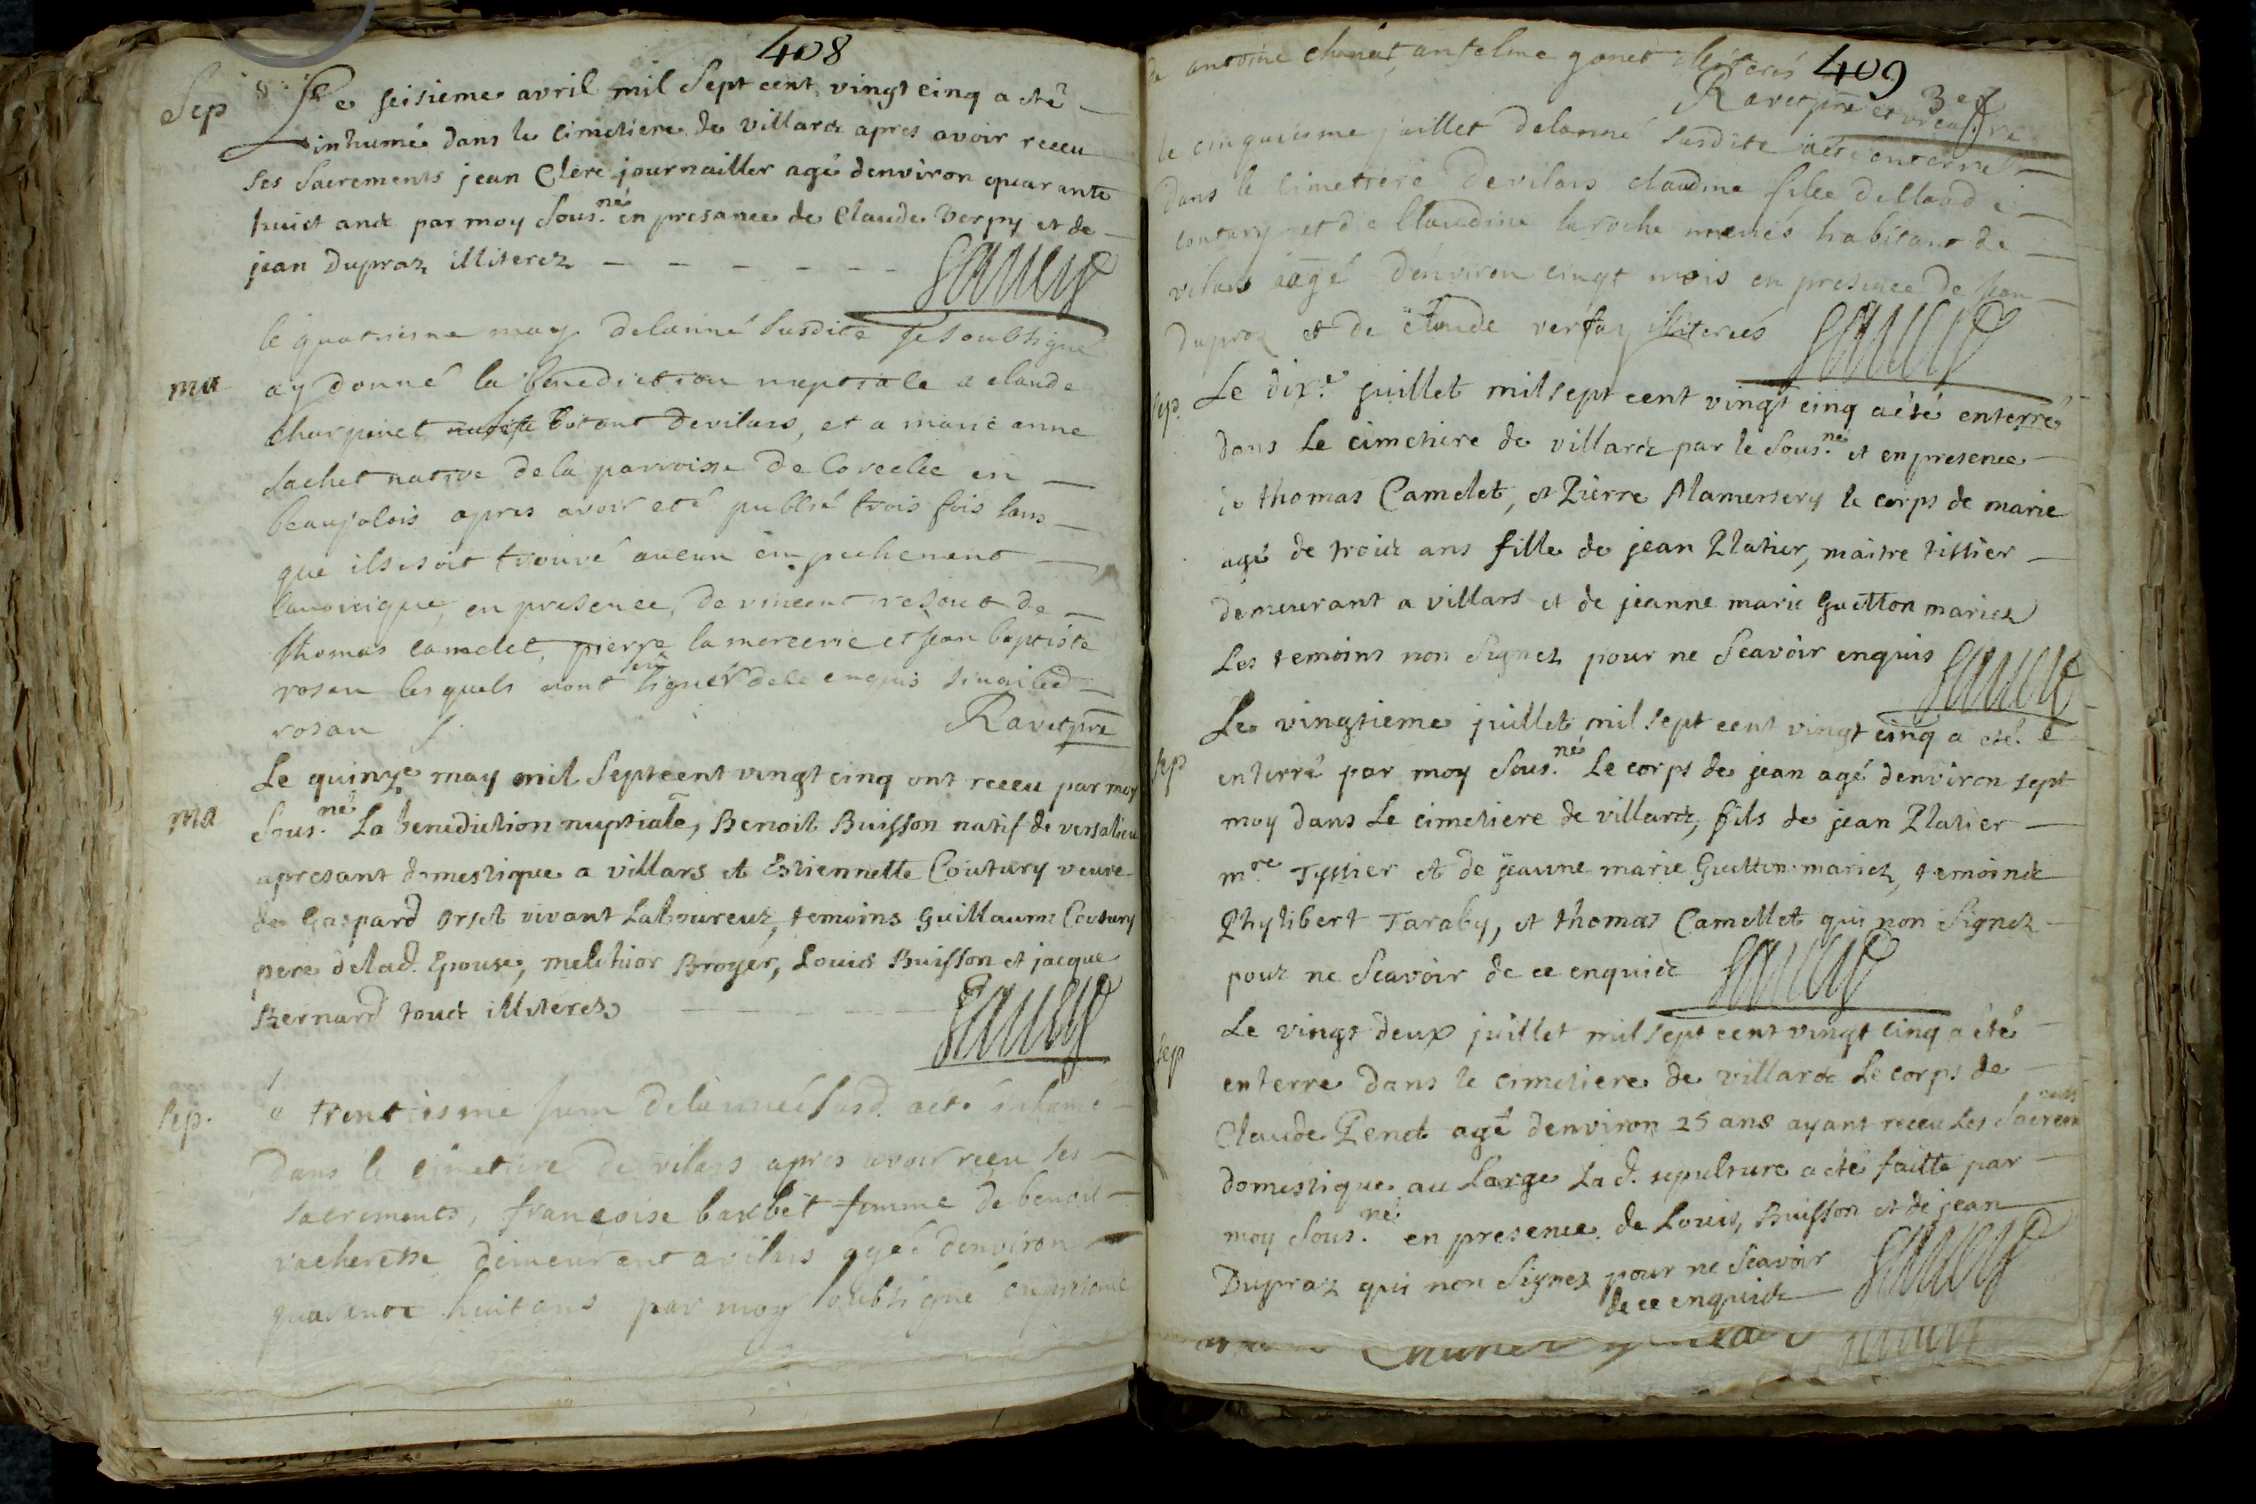 408
Sep Le seisieme avril mil Sept cent vingt cinq a eté
inhumé dans le cimetiere de villarz apres avoir receu
ses Sacrements jean Clere journailler agé denviron quarante
huict ans par moy Sous.né en presance de Claude Verpy et de
jean Dupraz illiterez
le quatriesme may delanné susdite je soubsigné
ma ay donné la benediction nuptiale a claude
charpinet devilars, et a marie anne
sachet native de la parroisse de en
beaujolois apres avoir eté publié trois fois sans
que ils soit trouvé aucun empechement
canonique, en presence, de vincent de
thomas camelet, pierre lamercerie et jean baptiste
rosan lesquels nont signer dece enquis sinon led
rosan Ravet pre
Le quinze may mil Septcent vingt cinq ont receu par moy
ma Sous.né La benediction nuptiale, Benoit Buisson natif de versalieu
apresant domestique a villars et Estiennette Coutury veuve
de Gaspard Orset vivant Laboureur, temoins Guillaume Coutury
pere delad. Epouse, melchior Broyer, Louis Buisson et jacque
Bernard tout illiterez
Sep. e trentiesme juin delanneé susd. aeté inhume
dans le cimetiere de vilars apres avoir reçeu ses
sacrements, francoise barbet femme de benoit
vacheresse demeurant avilars ageé denviron
quarante huit ans par moy soubsigné
409
antoine chanet, anselme gonet illiterés
Ravet pre et vicaire
le cinquiesme juillet delanné susdite aeté enterré
dans le cimetiere devilars claudine fille de claude
coutury et de Claudine laroche mariés habitant de
vilars aagé denviron cinqt mois en presence de jean
dupraz et de claude illiterés
Sep. Le dix.e juillet mil sept cent vingt cinq a été enterré
dans Le cimetiere de villarz par le Sous.né et en presence
de thomas Camelet, et Pierre Mamersery le corps de marie
agé de troiz ans fille de jean Platier, maitre tissier
demeurant a villars et de jeanne marie Guetton mariez
Les temoins non Signez pour ne Scavoir enquis
Le vingtieme juillet mil sept cent vingt cinq a eté
Sep enterré par moy Sous.né Le corps de jean agé denviron sept
moy dans Le cimetiere de villarz, fils de jean Platier
m.re Tyssier et de jeanne marie Guetton mariez, temoinz
Phylibert Taraby, et thomas Camellet qui non Signez
pour ne Scavoir de ce enquiz
Sep Le vingt deux juillet mil sept cent vingt cinq a été
enterre dans le cimetiere de villarz Le corps de
Claude Penet agé denviron 25 ans ayant receu Les Sacrements
domestique au Large Lad. sepulture a eté faitte par
moy Sous.né en presence de Louis, Buisson et de jean
Dupraz qui non Signez pour ne Scavoir
de ce enquiz